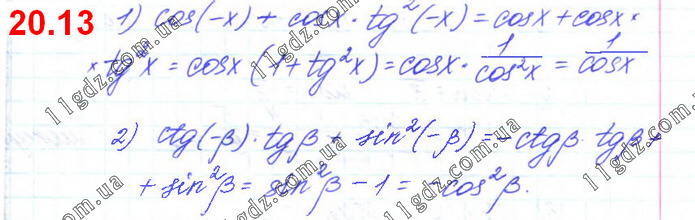 20.13
1) cos(-x) + cosx · tg²(-x) = cosx + cosx ·
× tg²x = cosx (1 + tg²x) = cosx · 1/cos²x = 1/cosx
2) ctg(-β) · tgβ + sin²(-β) = -ctgβ · tgβ +
+ sin²β = sin²β - 1 = -cos²β.
11gdz.com.ua
11gdz.com.ua
11gdz.com.ua
11gdz.com.ua
11gdz.com.ua